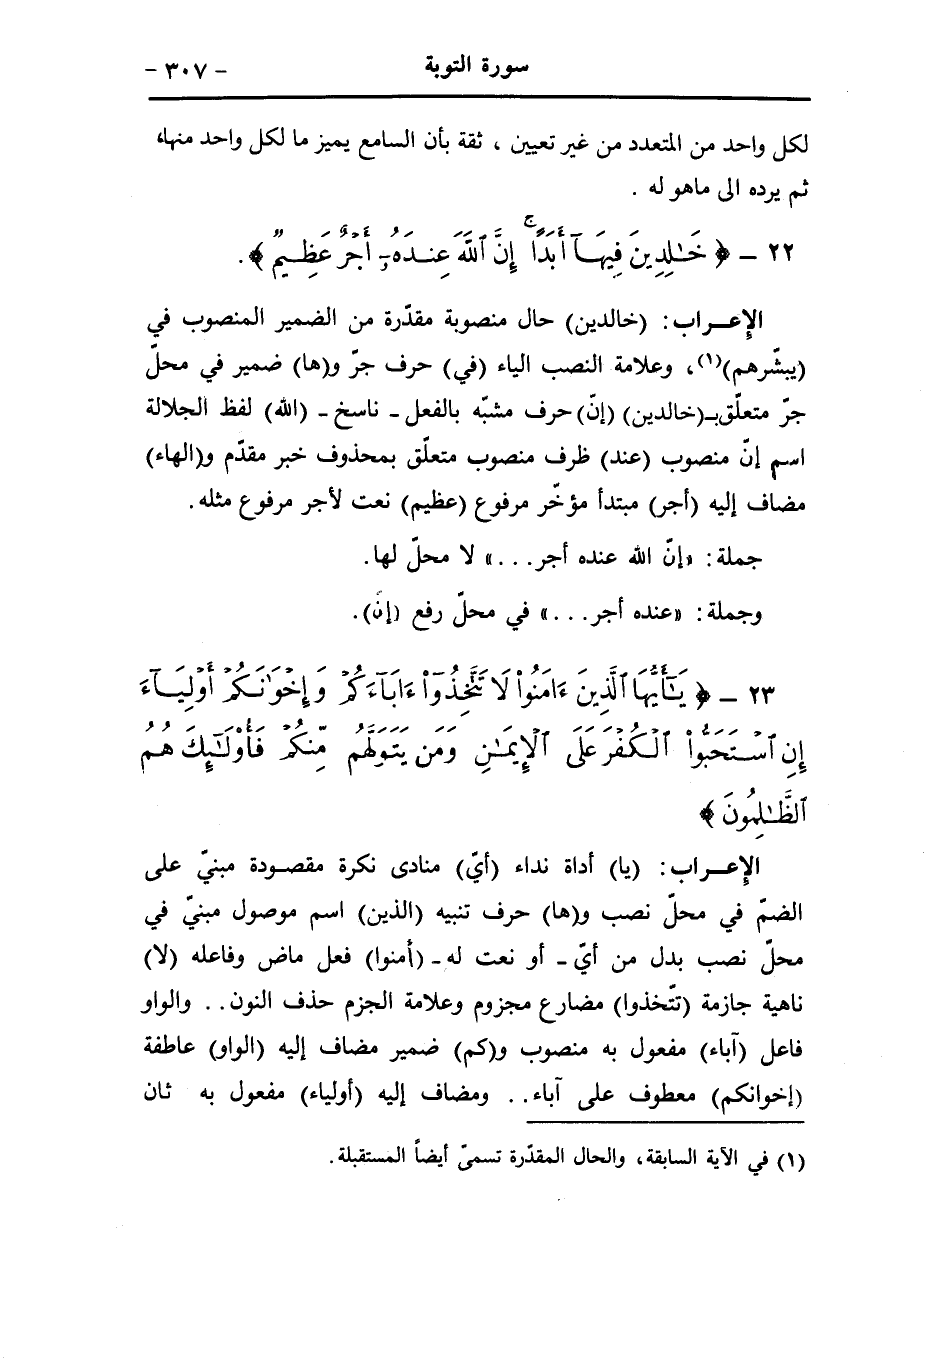 سورة التوبة - ٣٠٧ -
لكل واحد من المتعدد من غير تعيين ، ثقة بأن السامع يميز ما لكل واحد منها،
ثم يرده الى ماهو له .
٢٢ - ﴿ خَـٰلِدِينَ فِيهَآ أَبَدًا ۚ إِنَّ ٱللَّهَ عِندَهُۥٓ أَجْرٌ عَظِيمٌ ﴾.
الإعـراب: (خالدين) حال منصوبة مقدّرة من الضمير المنصوب في
(يبشّرهم)(١)، وعلامة النصب الياء (في) حرف جرّ و(ها) ضمير في محلّ
جرّ متعلّق بـ(خالدين) (إنّ) حرف مشبّه بالفعل - ناسخ - (الله) لفظ الجلالة
اسم إنّ منصوب (عند) ظرف منصوب متعلّق بمحذوف خبر مقدّم و(الهاء)
مضاف إليه (أجر) مبتدأ مؤخّر مرفوع (عظيم) نعت لأجر مرفوع مثله.
جملة: «إنّ الله عنده أجر...» لا محلّ لها.
وجملة: «عنده أجر...» في محلّ رفع (إنّ).
٢٣ - ﴿ يَـٰٓأَيُّهَا ٱلَّذِينَ ءَامَنُوا۟ لَا تَتَّخِذُوٓا۟ ءَابَآءَكُمْ وَإِخْوَٰنَكُمْ أَوْلِيَآءَ
إِنِ ٱسْتَحَبُّوا۟ ٱلْكُفْرَ عَلَى ٱلْإِيمَـٰنِ وَمَن يَتَوَلَّهُم مِّنكُمْ فَأُو۟لَـٰٓئِكَ هُمُ
ٱلظَّـٰلِمُونَ ﴾
الإعـراب: (يا) أداة نداء (أيّ) منادى نكرة مقصـودة مبنيّ على
الضمّ في محلّ نصب و(ها) حرف تنبيه (الذين) اسم موصول مبنيّ في
محلّ نصب بدل من أيّ - أو نعت له - (أمنوا) فعل ماض وفاعله (لا)
ناهية جازمة (تتّخذوا) مضارع مجزوم وعلامة الجزم حذف النون.. والواو
فاعل (آباء) مفعول به منصوب و(كم) ضمير مضاف إليه (الواو) عاطفة
(إخوانكم) معطوف على آباء.. ومضاف إليه (أولياء) مفعول به ثان
(١) في الآية السابقة، والحال المقدّرة تسمىّ أيضاً المستقبلة.